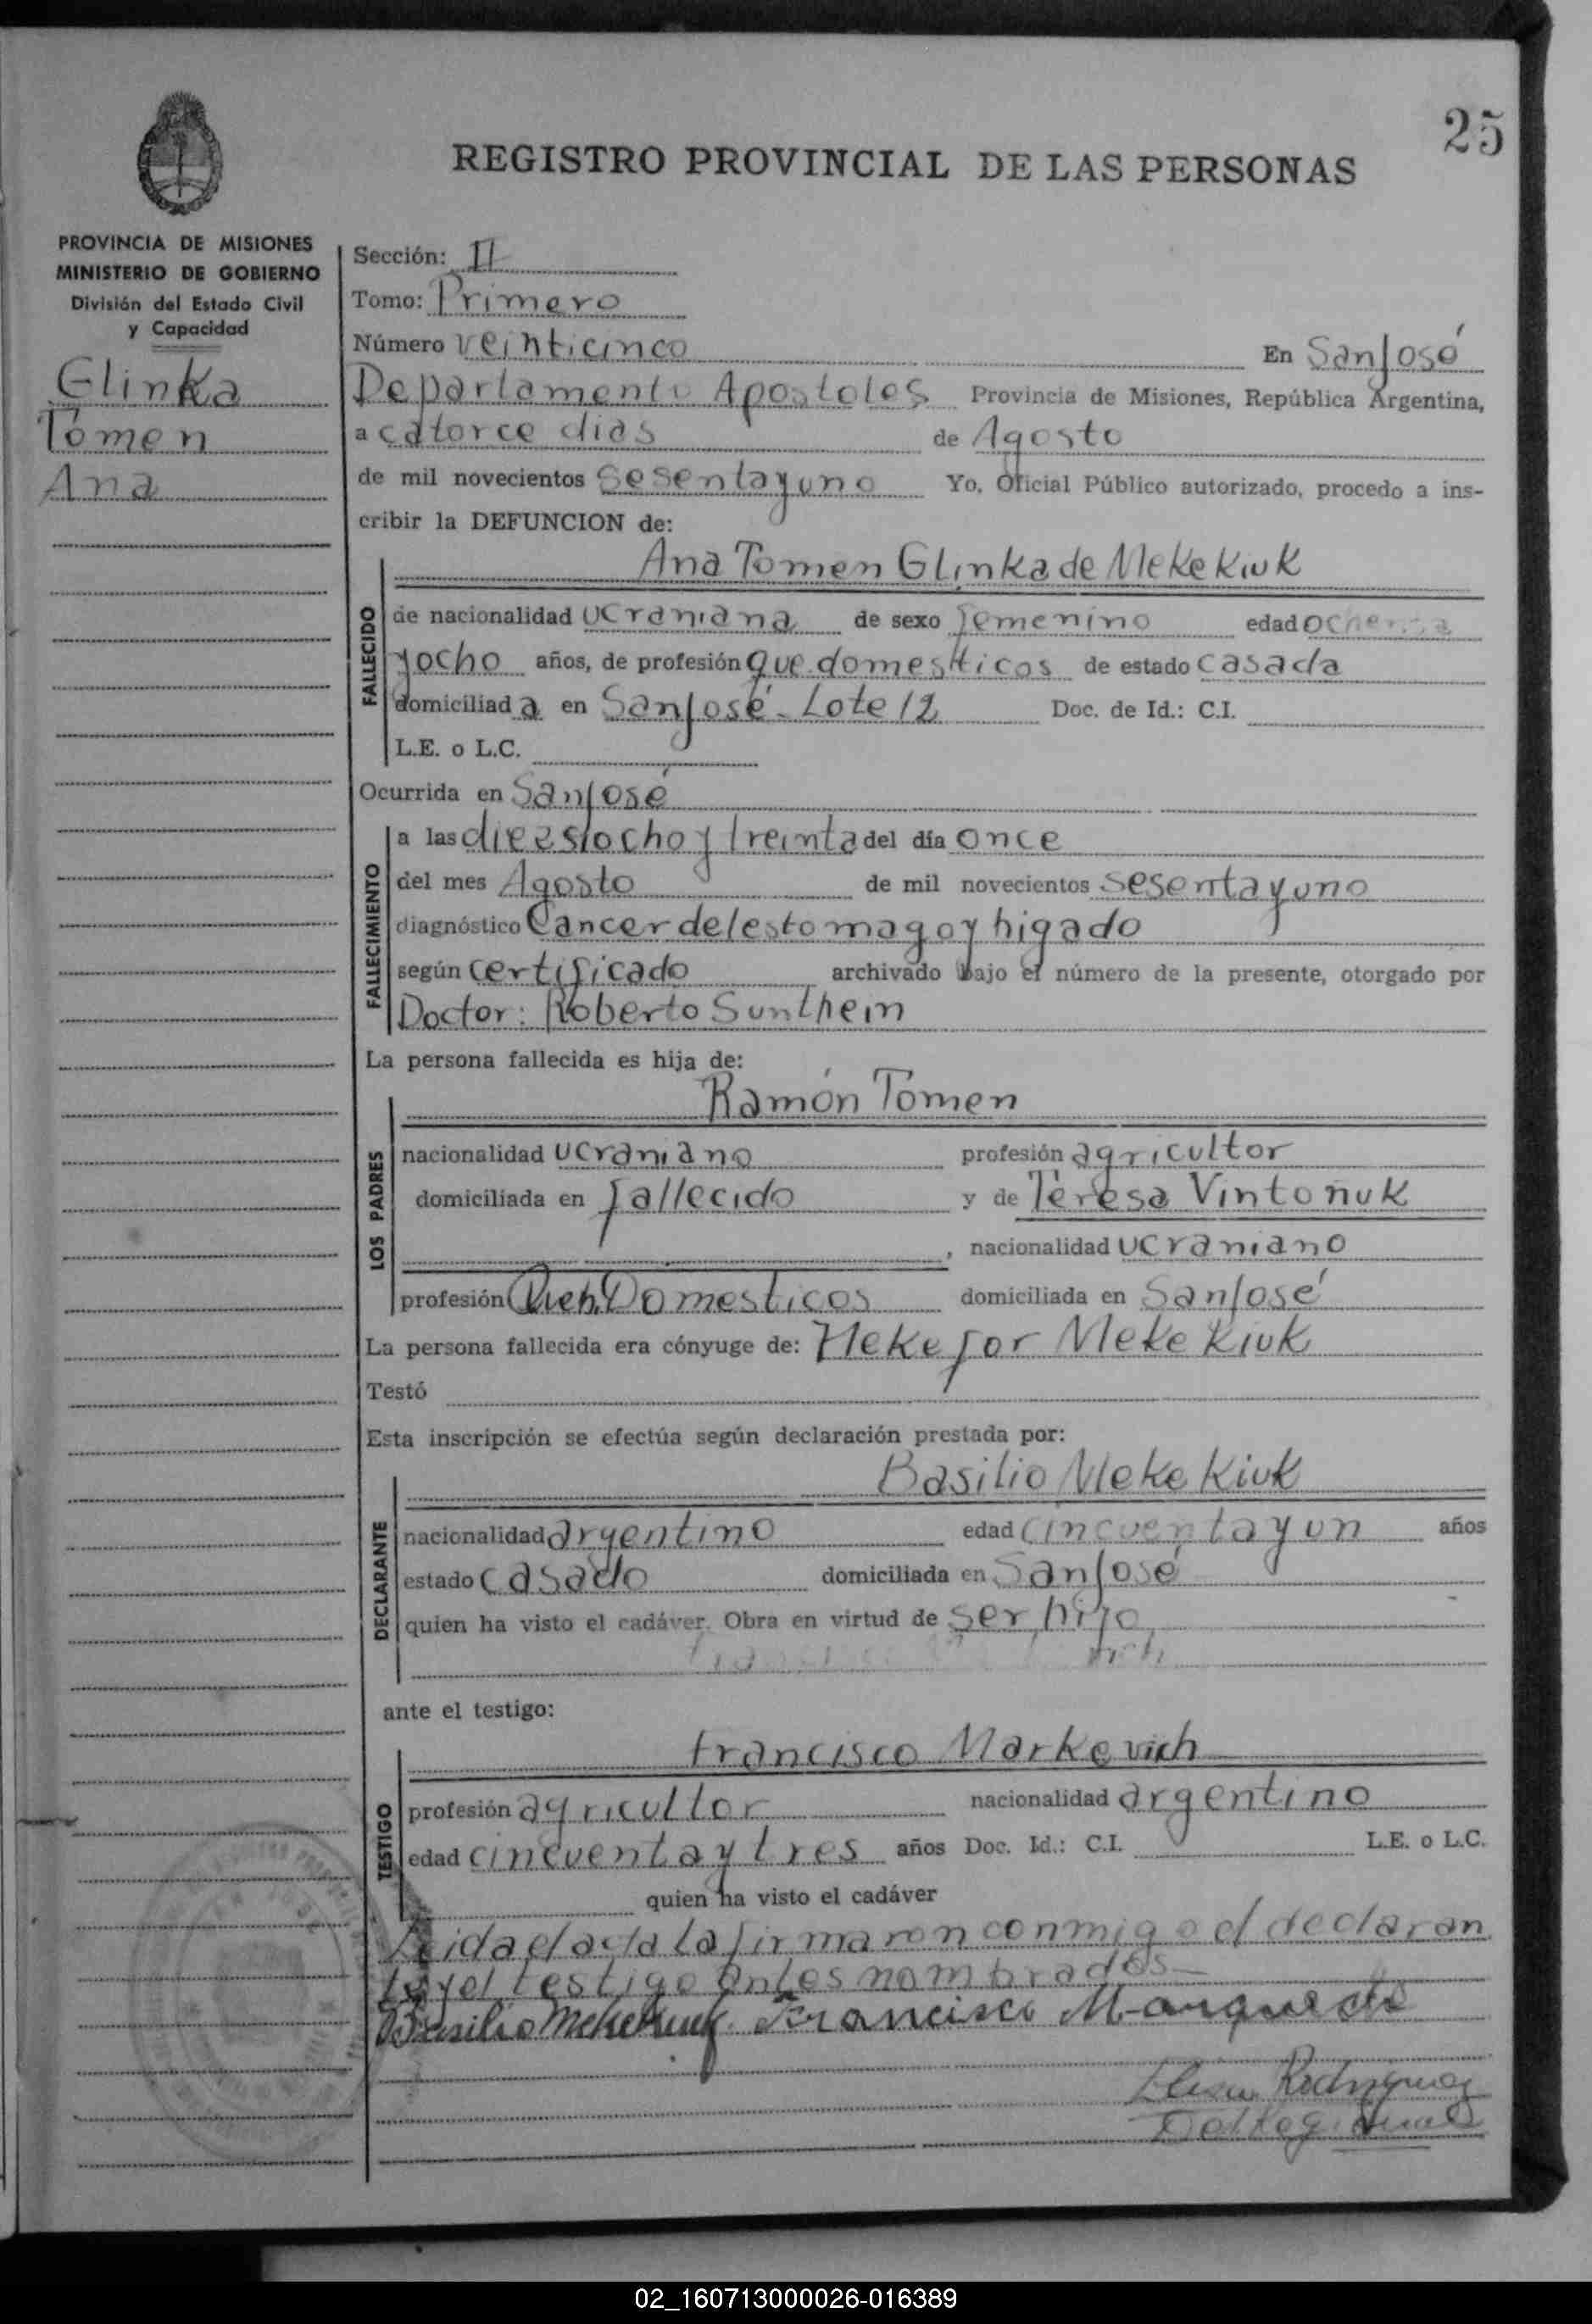 25
REGISTRO PROVINCIAL DE LAS PERSONAS
PROVINCIA DE MISIONES
MINISTERIO DE GOBIERNO
División del Estado Civil
y Capacidad
Glinka
Tomen
Ana
Sección: II
Tomo: Primero
Número veinticinco En San José
Departamento Apostoles Provincia de Misiones, República Argentina,
a catorce dias de Agosto
de mil novecientos sesentayuno Yo, Oficial Público autorizado, procedo a ins-
cribir la DEFUNCION de:
Ana Tomen Glinka de Mekekiuk
FALLECIDO
de nacionalidad ucraniana de sexo femenino edad ochenta
yocho años, de profesión que.domesticos de estado casada
domiciliada en San José - Lote 12 Doc. de Id.: C.I.
L.E. o L.C.
Ocurrida en San José
FALLECIMIENTO
a las dieesiocho y treinta del día once
del mes Agosto de mil novecientos sesentayuno
diagnóstico Cancer del estomago y higado
según certificado archivado bajo el número de la presente, otorgado por
Doctor: Roberto Sunthein
La persona fallecida es hija de:
Ramón Tomen
LOS PADRES
nacionalidad ucraniano profesión agricultor
domiciliada en fallecido y de Teresa Vintoñuk
, nacionalidad ucraniano
profesión Queh.Domesticos domiciliada en San José
La persona fallecida era cónyuge de: Mekefor Mekekiuk
Testó
Esta inscripción se efectúa según declaración prestada por:
Basilio Mekekiuk
DECLARANTE
nacionalidad argentino edad cincuentayun años
estado casado domiciliada en San José
quien ha visto el cadáver. Obra en virtud de ser hijo
ante el testigo:
Francisco Markevich
TESTIGO
profesión agricultor nacionalidad argentino
edad cincuentaytres años Doc. Id.: C.I. L.E. o L.C.
quien ha visto el cadáver
Leida el acta la firmaron conmigo el declaran
te y el testigo antes nombrados
Basilio Mekekiuk Francisco
Rodriguez
02_160713000026-016389